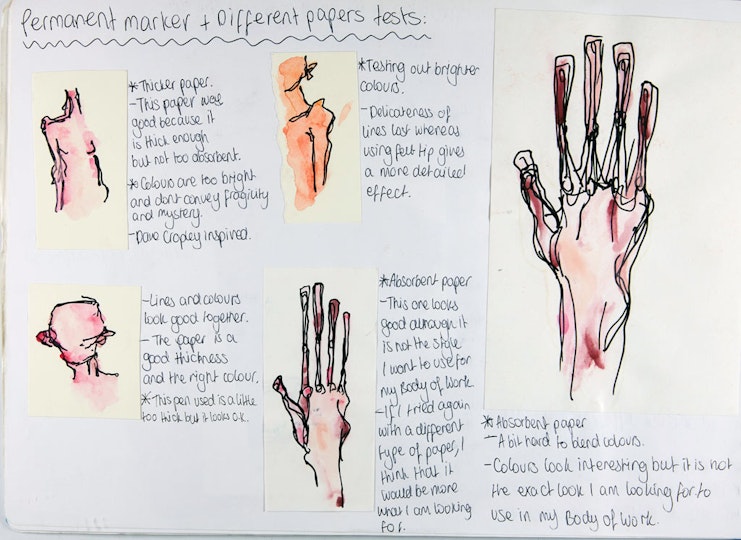 Permanent marker + Different papers tests:
* Thicker paper.
- This paper works
good because it
is thick enough
but not too absorbent.
* Colours are too bright
and dont convey fragility
and mystery.
- Dave Cropley inspired.
* Testing out brighter
colours.
- Delicateness of
lines lost whereas
using felt tip gives
a more detailed
effect.
- Lines and colours
look good together.
- The paper is a
good thickness
and the right colour.
* This pen used is a little
too thick but it looks O.K.
* Absorbent paper
- This one looks
good although it
is not the style
I want to use for
my Body of Work.
- If I tried again
with a different
type of paper, I
think that it
would be more
what I am looking
for.
* Absorbent paper
- A bit hard to blend colours.
- Colours look interesting but it is not
the exact look I am looking for to
use in my Body of Work.